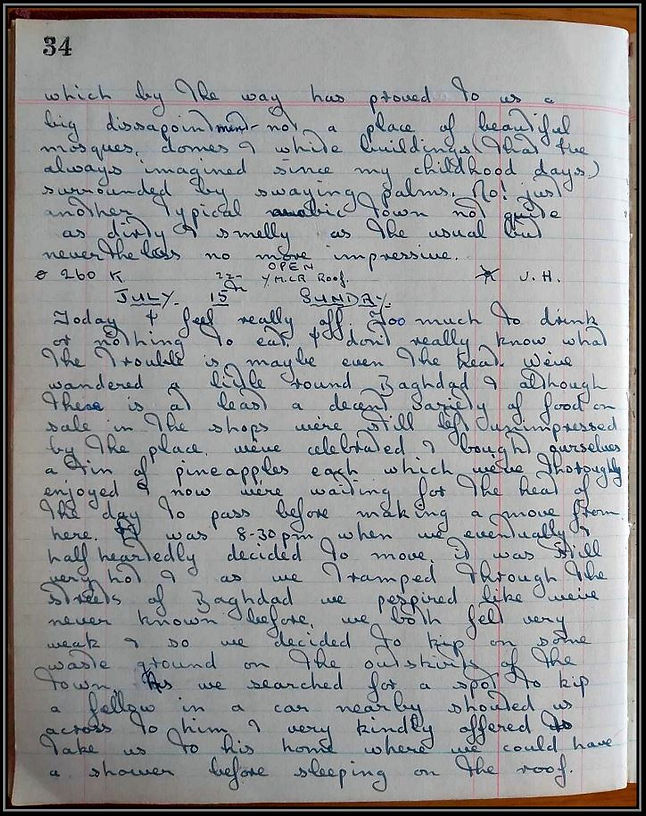 34
which by the way has proved to us a
big dissapointment - not a place of beautiful
mosques, domes & white buildings (that I've
always imagined since my childhood days)
surrounded by swaying palms. No! just
another typical arabic town not quite
as dirty & smelly as the usual but
neverthelass no more impressive.
260 K OPEN Y.M.C.A Roof. J.H.
JULY. 15th SUNDAY.
Today I feel really off, Too much to drink
or nothing to eat, I don't really know what
the trouble is, maybe even the heat. We've
wandered a little round Baghdad & although
there is at least a decent variety of food on
sale in the shops we're still left unimpressed
by the place. we've celebrated & bought ourselves
a tin of pineapples each which we've thoroughly
enjoyed & now we're waiting for the heat of
the day to pass before making a move from
here. It was 8-30pm when we eventually &
half heartedly decided to move, it was still
very hot & as we tramped through the
streets of Baghdad we pespired like we've
never known before, we both felt very
weak & so we decided to kip on some
waste ground on the outskirts of the
town. As we searched for a spot to kip
a fellow in a car nearby shouted us
across to him & very kindly offered to
take us to his home where we could have
a shower before sleeping on the roof.